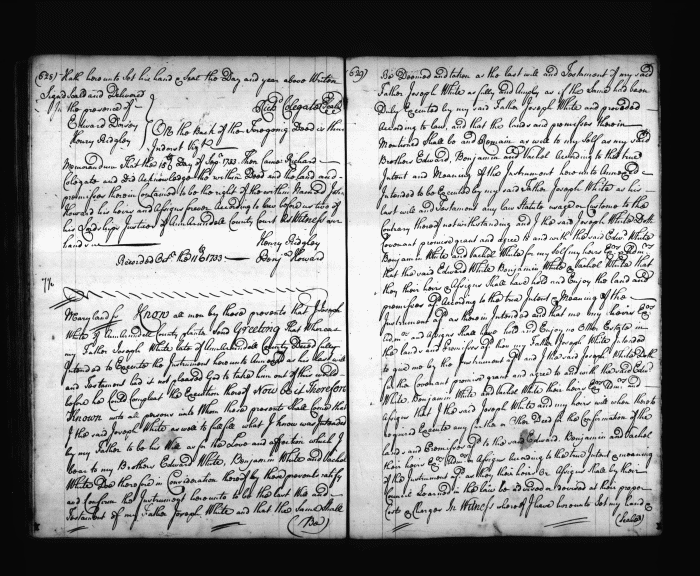 (628) Hath hereunto Set his hand & Seal the Day and year above Written
Signed Sealed and Delivered
In the presence of
Edward Dorsey
Henry Ridgley
Richd Colegate (Seal)
On the Back of the Foregoing Deed is thus
Indorst Viz
Memorandum That the Day of 1733 Then came Richard
Colegate and did Acknowledge the within Deed and the Land and
premisses therein Contained to be the right of the within Named John
Howard his heirs and Assigns forever According to Law before us two of
his Lordships Justices of Ann Arundell County Court As Witness our
hands
Henry Ridgley
Recorded Octr the 11th 1733
Howard
Maryland ss Know all men by these presents that I Joseph
White of Ann Arundell County Send Greeting that Whereas
my Father Joseph White late of Ann Arundell County Decd fully
Intended to Execute the Instrument hereunto Annexed as his last will
and Testament had it not pleased God to take him out of this world
before he had Compleat the Execution thereof Now be it Therefore
Known unto all persons into Whom these presents Shall Come that
I the said Joseph White as well to fulfill what I know was Intended
by my Father to be his Will as for the Love and affection which I
bear to my Brothers Edward White, Benjamin White and Vachel
White Do therefore in Consideration hereof by these presents ratify
and Confirm the Instrument hereunto to be the last Will and
Testament of my Father Joseph White and that the Same Shall
(Be)
629) Be Deemed and taken as the last will and Testament of my said
Father Joseph White as fully and Amply as if the Same had been
Duly Executed by my said Father Joseph White and proved
According to Law, and that the Lands and premisses therein
Mentioned Shall be and Remain as well to my Self as my said
Brothers Edward Benjamin and Vachel According to the true
Intent and Meaning of the Instrument hereunto Annexed
Intended to be Executed by my said Father Joseph White as his
last will and Testament any Law Statute usage or Custome to the
Contrary thereof notwithstanding and I the said Joseph White Doth
Covenant promise grant and agree to and with the said Edwd White
Benjamin White and Vachel White for my Self my heirs Exrs Admrs
that the said Edward White Benjamin White & Vachel White that
they their heirs & Assigns Shall have hold and Enjoy the land and
premisses According to the true Intent & Meaning of the
Instrument as therein Intended and that me my heirs Exrs
Admrs and Assigns Shall have hold and Enjoy no Other Estate in
the Lands and premisses than my Father Joseph White Intended
to give me by the Instrument and I the said Joseph White Doth
further Covenant promise grant and agree to and with the said Edwd
White, Benjamin White and Vachel White their heirs Exrs Admrs and
Assigns that I the said Joseph White and my heirs will when thereto
required Execute any further or Other Deed for the Confirmation of the
Lands and premisses to the said Edward, Benjamin and Vachel
their heirs Exrs Admrs or Assigns According to the true Intent & meaning
of the Instrument as they their heirs or Assigns Shall by their
Councel Learned in the Law be or advised at their proper
Costs & Charges In Witness whereof I have hereunto Set my hand &
(Sealed)